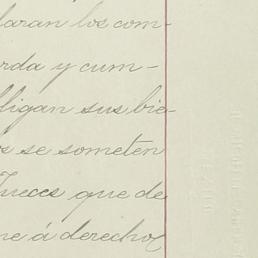 laran los com-
rda y cum-
bligan sus bie-
s se someten
Jueces que de
ne á derecho